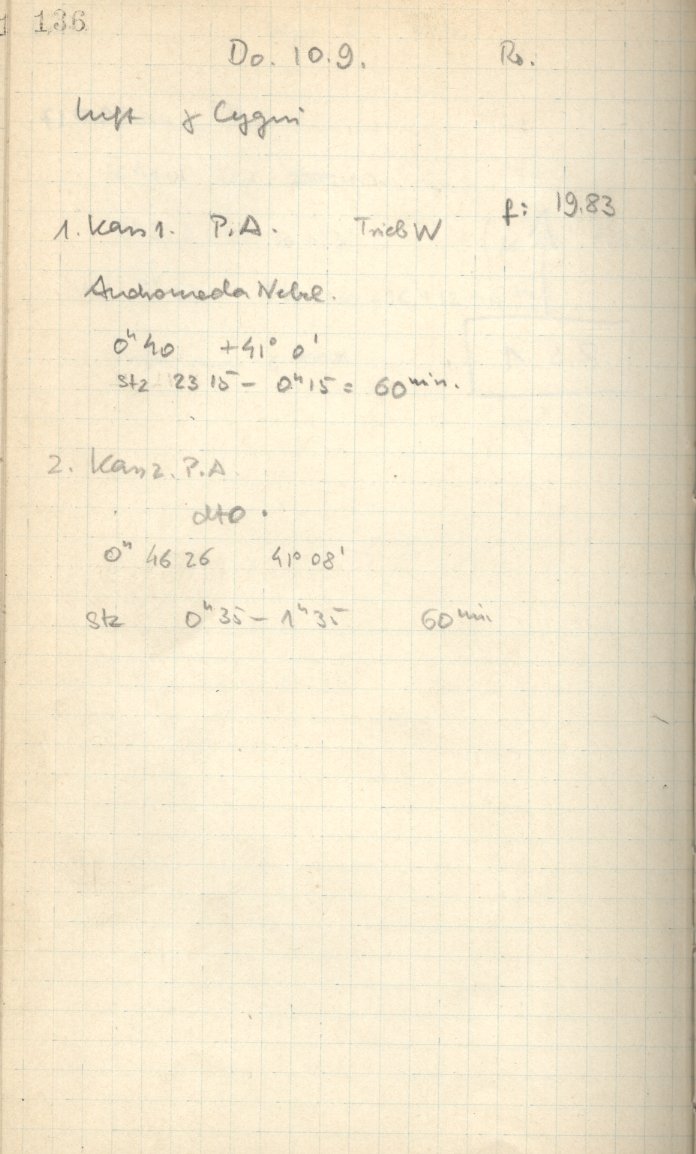 136
Do. 10.9. Ro.
Luft γ Cygni
f: 19.83
1. Kass 1. P.A. Trieb W
Andromeda Nebel.
0ʰ 40 +41° 0'
Stz 23 15 - 0ʰ 15 = 60 min.
2. Kass 2. P.A.
dto.
0ʰ 46 26 41° 08'
Stz 0ʰ 35 - 1ʰ 35 60 min